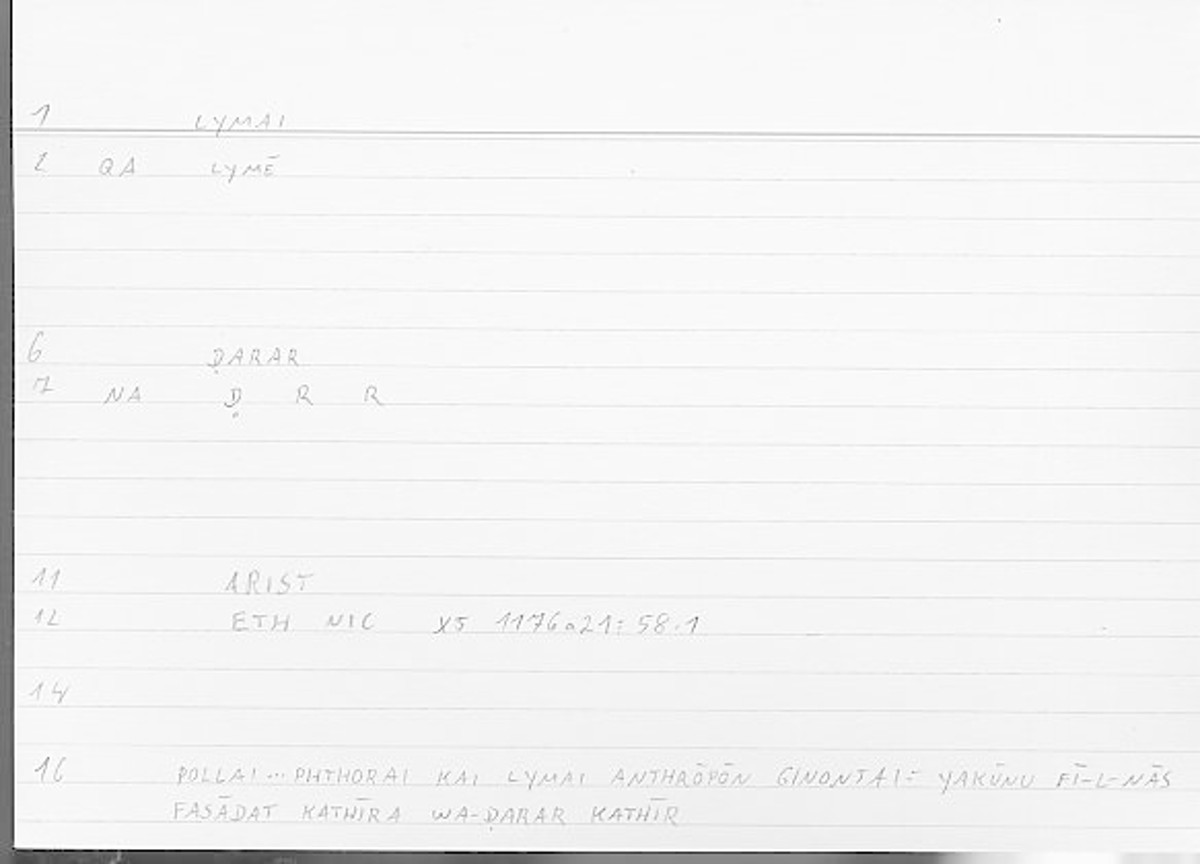 1 LYMAI
2 QA LYMĒ
6 ḌARAR
7 NA Ḍ R R
11 ARIST
12 ETH NIC X5 1176a21: 58.1
14
16 POLLAI... PHTHORAI KAI LYMAI ANTHRŌPŌN GINONTAI: YAKŪNU FĪ-L-NĀS
FASĀDAT KATHĪRA WA-ḌARAR KATHĪR